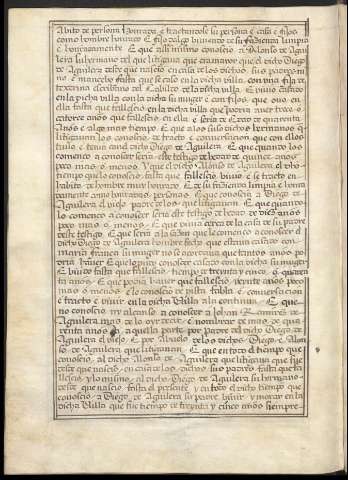 Abito de persona honrrada e tractandose su persona e casa e fijos
como hombre honrrado e fijo dalgo biviendo de su fazienda limpia
e honrradamente E que assi mismo conoscio a Alonso de Agui
lera su hermano del que litigava que era mayor que el dicho Diego
de Aguilera desde que nascio en casa de los dichos sus padres ni
ño e mancebo fasta que se caso en la dicha villa con una fija de
texerina escribano del Cabildo de la dicha villa E bivio casado
en la dicha villa con la dicha su muger e con fijos que ovo en
ella fasta que fallescio en la dicha villa que podria aver treze o
catorze años que fallescio en ella e seria de edad de quarenta
Años e algo mas tiempo E que a los suso dichos hermanos q
litigavan los conoscio de tracto e conversacion que con ellos
tuvo e tenia con el dicho Diego de Aguilera E que quando los
començo a conoscer seria este testigo de hedad de quinze años
poco mas o menos Y que el dicho Alonso de Aguilera el dicho
tiempo que lo conoscio fasta que fallescio bivio e se tracto en
habito de hombre muy honrrado E de su fazienda limpia e honrra
damente como honrradas personas E que conoscio a Diego de
Aguilera el viejo padre de los que litigavan E que quando
lo començo a conoscer seria este testigo de hedad de diez años
poco mas o menos E que bivia cerca de la casa de su padre
deste testigo E que seria a la sazon que le començo a conoscer el
dicho Diego de Aguilera hombre fecho que estava casado con
maria franco su muger no se acordava que tantos años po
dria haver E que lo pudo conoscer casado con la dicha su muger
E biudo fasta que fallescio tiempo de treynta y cinco o quaren
ta años E que podia haver que fallescio veynte años poco
mas o menos e lo conoscio de vista fabla e conversacion
e tracto e vivir en la dicha Villa a la continua E que
no conoscio ny alcanço a conoscer a Johan Ramirez de
Aguilera mas de lo oyr dezir e nombrar de mas de qua
renta años a aquella parte por Padre del dicho Diego de
Aguilera el viejo E por Abuelo de los dichos Diego e Alon
so de Aguilera que litigavan E que en todo el tiempo que
conoscio al dicho Alonso de Aguilera que litigava que fue
desde que nascio en casa de los dichos sus padres fasta que fa
llescio y lo mismo al dicho Diego de Aguilera su hermano
desde que nascio fasta el presente y en todo el dicho tiempo que
conoscio a Diego de Aguilera su padre bivir y morar en la
dicha Villa que fue tiempo de treynta y cinco años siempre